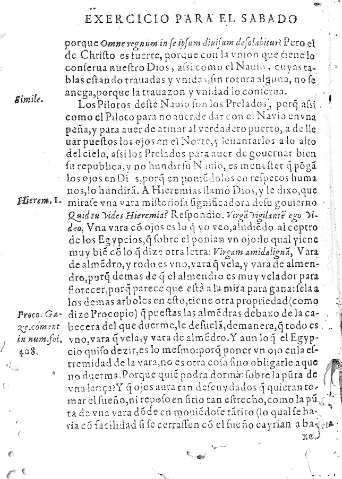 EXERCICIO PARA EL SABADO
porque Omne regnum in se ipsum diuisum desolabitur? Pero el
de Christo es fuerte, porque con la vnion que tiene lo
conserua nuestro Dios, assi como el Nauio, cuyas ta-
blas estando trauadas y vnidas, sin rotura alguna, no se
anega, porque la trauazon y vnidad lo conserua.
Simile.
Los Pilotos deste Nauio son los Prelados, porq̃ assi
como el Piloto para no auer de dar con el Nauio en vna
peña, y para auer de atinar al verdadero puerto, a de lle
uar puestos los ojos en el Norte, y leuantarlos a lo alto
del cielo, assi los Prelados para auer de gouernar bien
su republica, y no hundir su Nauio, es menester q̃ põgã
los ojos en Dios, porq̃ en poniẽdolos en respetos huma
nos, lo hundirã. A Hieremias llamò Dios, y le dixo, que
Hierem. 1.
mirasse vna vara misteriosa significadora desu gouierno
Quid tu vides Hieremia? Respondio. Virgã vigilantẽ ego vi-
deo, Vna vara cõ ojos es lo q̃ yo veo, aludiẽdo al ceptro
de los Egypcios, q̃ sobre el ponian vn ojo: lo qual viene
muy biẽ cõ lo q̃ dize otra letra: Virgam amidalignã, Vara
de almẽdro, y todo es vno, vara q̃ vela, y vara de almen-
dro, porq̃ demas de q̃ el almendro es muy velador para
florecer, porq̃ parece que està a la mira para ganarsela a
los demas arboles en esto, tiene otra propriedad (como
Proco. Ga-
ze. coment
in num. foi.
408.
dize Procopio) q̃ puestas las almẽdras debaxo de la ca-
becera del que duerme, le desuelã, demanera, q̃ todo es
vno, vara q̃ vela, y vara de almẽdro. Y aun lo q̃ el Egyp-
cio quiso dezir, es lo mesmo: porq̃ poner vn ojo en la es-
tremidad de la vara, no es otra cosa sino obligarle a que
no duerma. Porque quiẽ podra dormir sobre la pũta de
vna lança? Y q̃ ojos aura tan desnudados q̃ quieran to-
mar el sueño, ni reposo en sitio tan estrecho, como la pũ-
ta de vna vara dõde en mouiẽdose tãtito (lo qual se ha-
via cõ facilidad si se cerrassen cõ el sueño cayrian a ba-
xo.